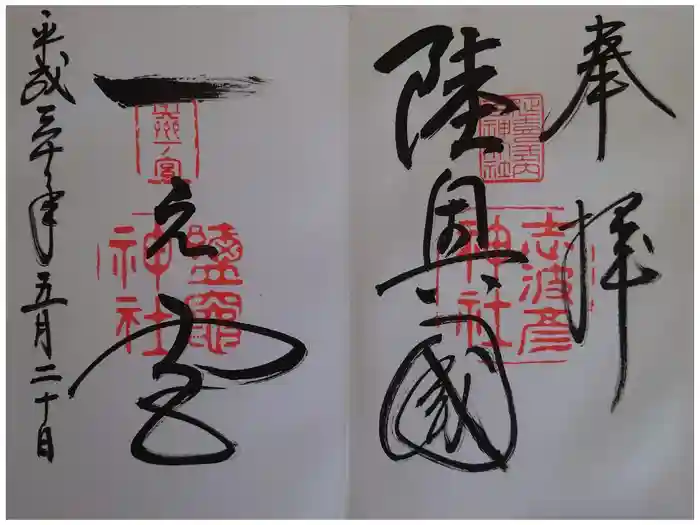 奉拝
陸奥國
延喜式内
神社
志波彦
神社
一之宮
奥州一ノ宮
鹽竈
神社
平成三十年五月二十日